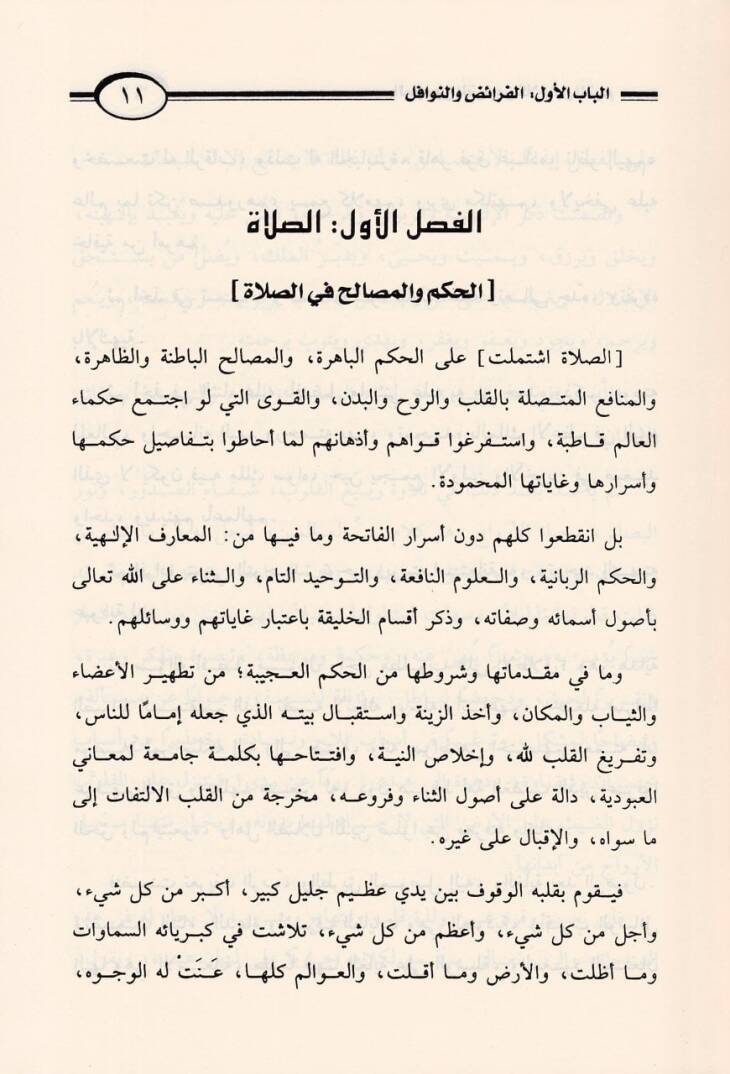 الباب الأول: الفرائض والنوافل
١١
الفصل الأول: الصلاة
[ الحكم والمصالح في الصلاة ]
[الصلاة اشتملت] على الحكم الباهرة، والمصالح الباطنة والظاهرة،
والمنافع المتصلة بالقلب والروح والبدن، والقوى التي لو اجتمع حكماء
العالم قاطبة، واستفرغوا قواهم وأذهانهم لما أحاطوا بتفاصيل حكمها
وأسرارها وغاياتها المحمودة.
بل انقطعوا كلهم دون أسرار الفاتحة وما فيها من: المعارف الإلهية،
والحكم الربانية، والعلوم النافعة، والتوحيد التام، والثناء على الله تعالى
بأصول أسمائه وصفاته، وذكر أقسام الخليقة باعتبار غاياتهم ووسائلهم.
وما في مقدماتها وشروطها من الحكم العجيبة؛ من تطهير الأعضاء
والثياب والمكان، وأخذ الزينة واستقبال بيته الذي جعله إمامًا للناس،
وتفريغ القلب لله، وإخلاص النية، وافتتاحها بكلمة جامعة لمعاني
العبودية، دالة على أصول الثناء وفروعه، مخرجة من القلب الالتفات إلى
ما سواه، والإقبال على غيره.
فيقوم بقلبه الوقوف بين يدي عظيم جليل كبير، أكبر من كل شيء،
وأجل من كل شيء، وأعظم من كل شيء، تلاشت في كبريائه السماوات
وما أظلت، والأرض وما أقلت، والعوالم كلها، عَنَتْ له الوجوه،